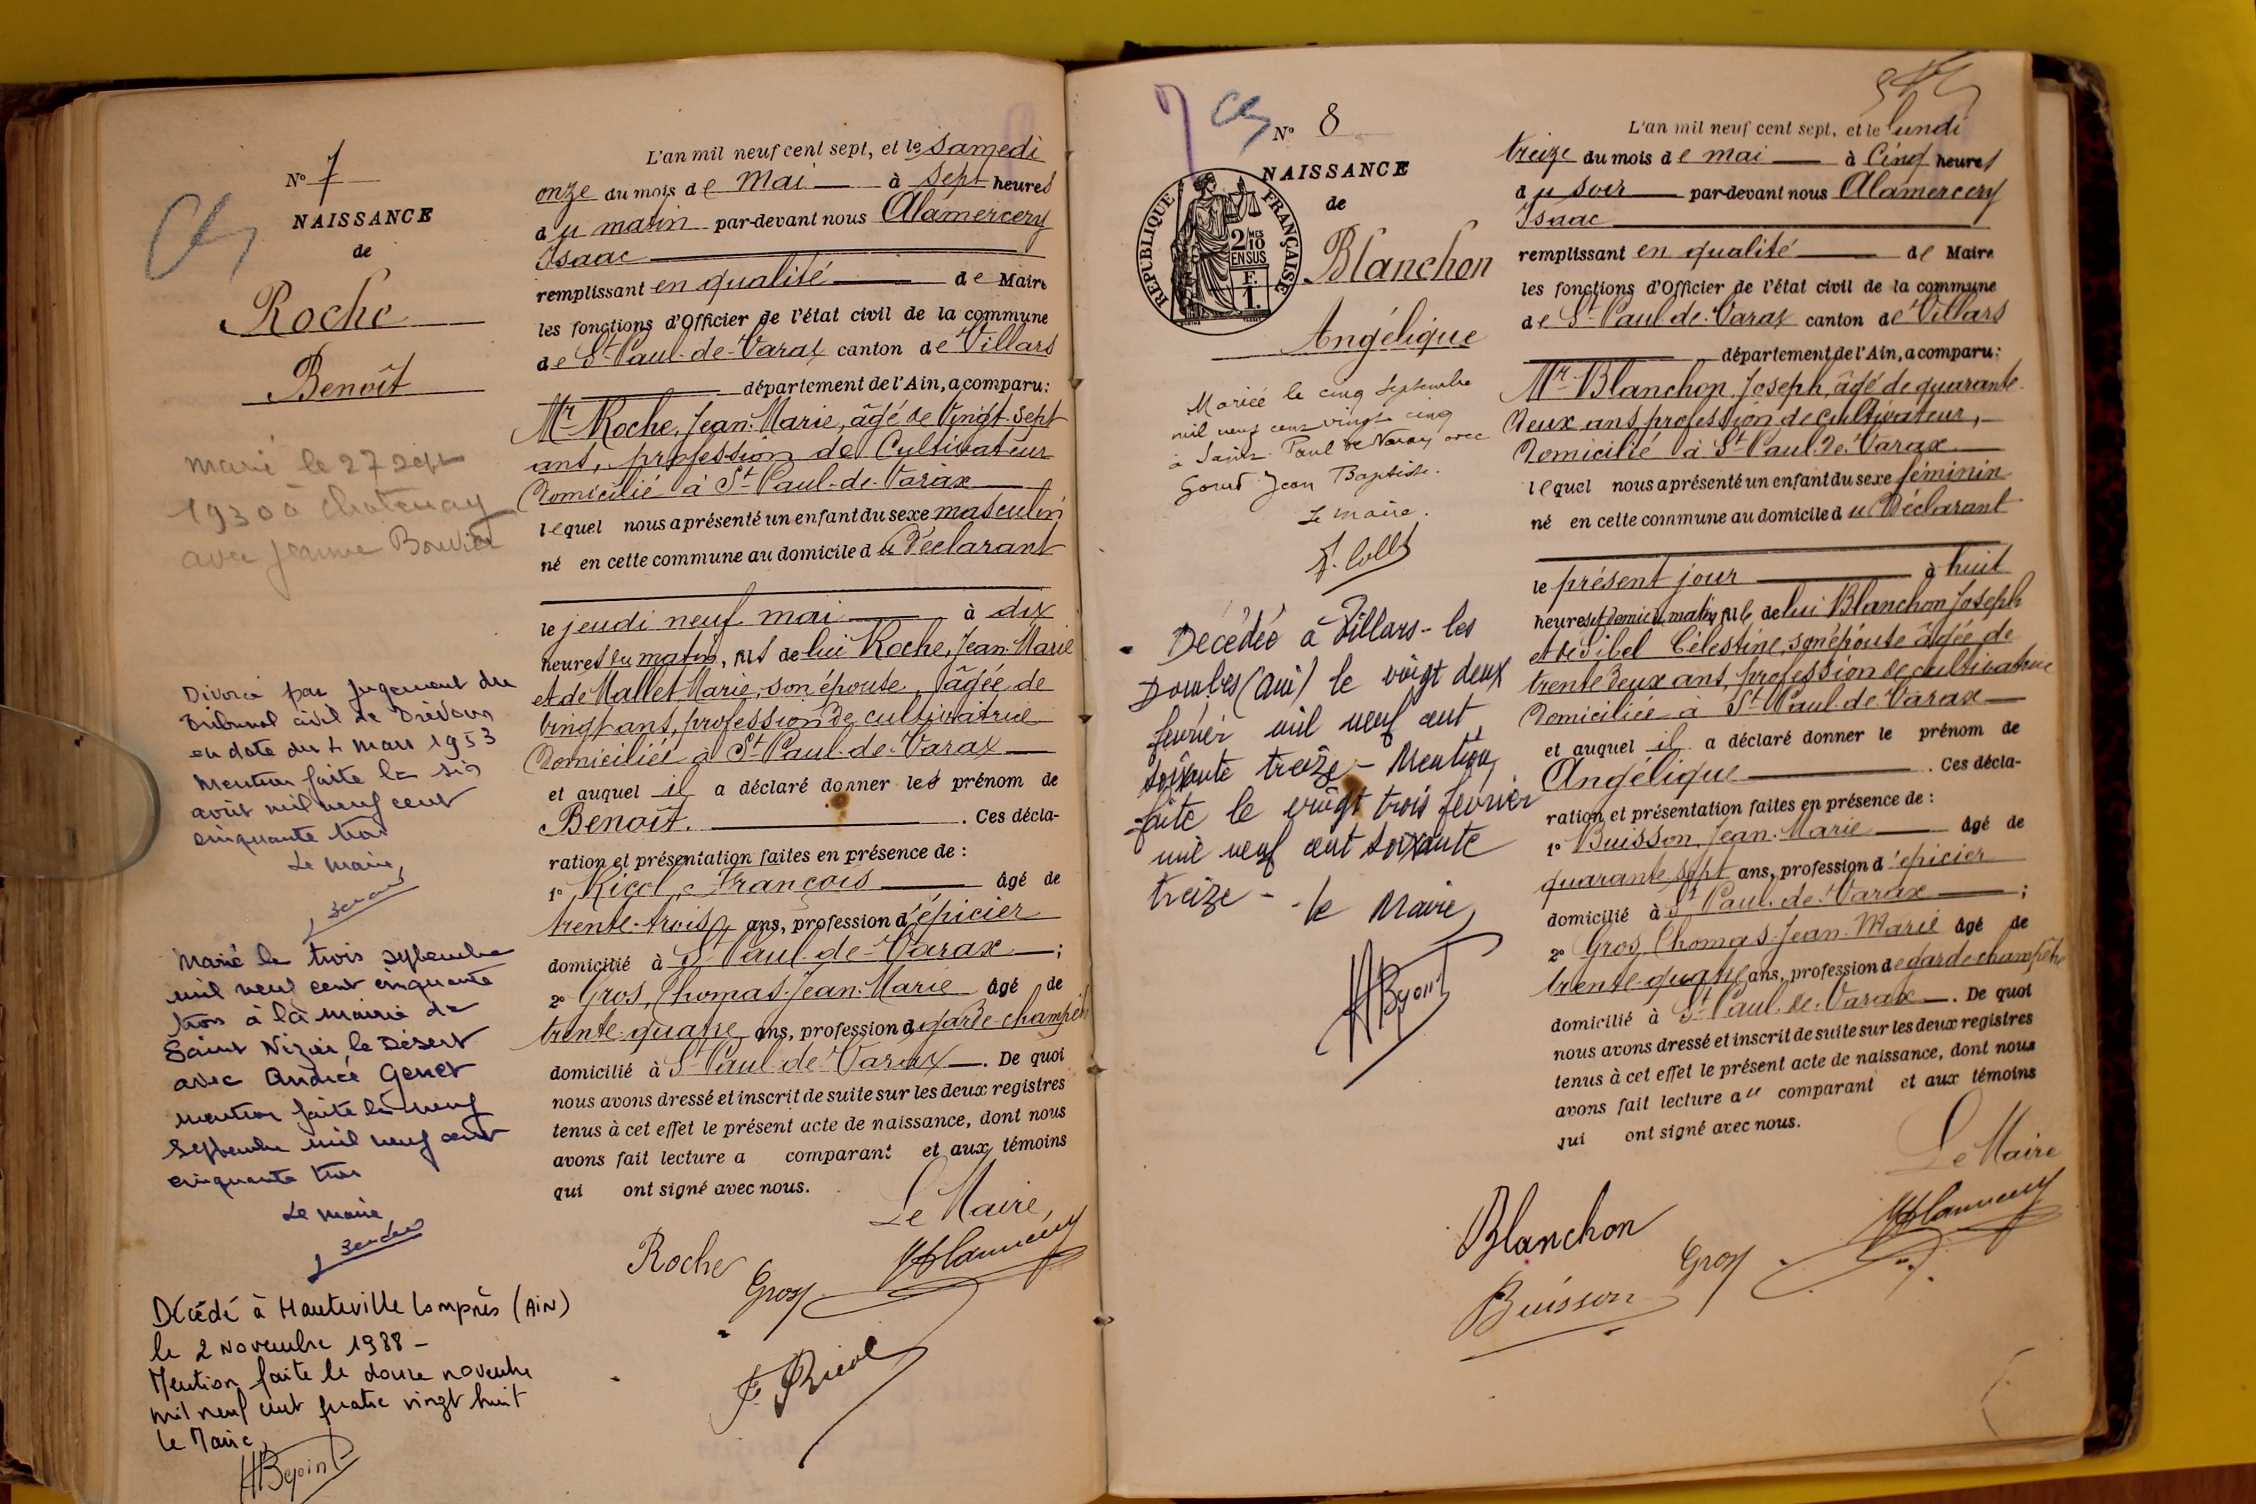 N° 7
NAISSANCE
de
Roche
Benoît
marié le 27 sept
1930 à Chatenay
avec Jeanne Bouvier
Divorcé par jugement du
Tribunal civil de Trévoux
en date du 4 mars 1953
Mention faite le six
août mil neuf cent
cinquante trois
Le maire,
Marié le trois septembre
mil neuf cent cinquante
trois à la mairie de
Saint Nizier le Désert
avec Andrée Genet
mention faite le neuf
septembre mil neuf cent
cinquante trois
Le maire
Décédé à Hauteville Lompnès (AIN)
le 2 novembre 1988 -
Mention faite le douze novembre
mil neuf cent quatre vingt huit
le Maire,
HBejoint
L'an mil neuf cent sept, et le samedi
onze du mois de mai à sept heures
du matin par-devant nous Alamercery
Isaac
remplissant en qualité de Maire
les fonctions d'Officier de l'état civil de la commune
de St Paul-de-Varax canton de Villars
département de l'Ain, a comparu:
Mr Roche, Jean-Marie, âgé de vingt-sept
ans, profession de Cultivateur
domicilié à St Paul-de-Varax
lequel nous a présenté un enfant du sexe masculin
né en cette commune au domicile du Déclarant
le jeudi neuf mai à dix
heures du matin, fils de lui Roche, Jean-Marie
et de Mallet Marie, son épouse, âgée de
vingt ans, profession de cultivatrice
domiciliée à St Paul-de-Varax
et auquel il a déclaré donner les prénom de
Benoît. . Ces décla-
ration et présentation faites en présence de :
1° Ricol, François âgé de
trente-trois ans, profession d'épicier
domicilié à St Paul-de-Varax ;
2° Gros, Thomas-Jean-Marie âgé de
trente-quatre ans, profession de garde-champêtre
domicilié à St Paul-de-Varax . De quoi
nous avons dressé et inscrit de suite sur les deux registres
tenus à cet effet le présent acte de naissance, dont nous
avons fait lecture a comparant et aux témoins
qui ont signé avec nous.
Le Maire,
Roche
Gros
F. Ricol
N° 8
NAISSANCE
de
RÉPUBLIQUE FRANÇAISE
2/10 MES
EN SUS
F.
1.
Blanchon
Angélique
Mariée le cinq septembre
mil neuf cent vingt cinq
à Saint Paul de Varax avec
Gourd Jean Baptiste.
Le maire.
Décédée à Villars-les
Dombes (Ain) le vingt deux
février mil neuf cent
soixante treize - Mention
faite le vingt trois février
mil neuf cent soixante
treize - le Maire,
HBejoint
L'an mil neuf cent sept, et le lundi
treize du mois de mai à cinq heures
du soir par-devant nous Alamercery
Isaac
remplissant en qualité de Maire
les fonctions d'Officier de l'état civil de la commune
de St Paul-de-Varax canton de Villars
département de l'Ain, a comparu:
Mr Blanchon, Joseph, âgé de quarante-
deux ans, profession de cultivateur,
domicilié à St Paul-de-Varax
lequel nous a présenté un enfant du sexe féminin
né en cette commune au domicile du Déclarant
le présent jour à huit
heures et demie du matin, fille de lui Blanchon Joseph
et de Sibel Célestine, son épouse âgée de
trente-deux ans, profession de cultivatrice
domiciliée à St Paul-de-Varax
et auquel il a déclaré donner le prénom de
Angélique . Ces décla-
ration et présentation faites en présence de :
1° Buisson, Jean-Marie âgé de
quarante-sept ans, profession d'épicier
domicilié à St Paul-de-Varax ;
2° Gros, Thomas-Jean-Marie âgé de
trente-quatre ans, profession de garde champêtre
domicilié à St Paul-de-Varax . De quoi
nous avons dressé et inscrit de suite sur les deux registres
tenus à cet effet le présent acte de naissance, dont nous
avons fait lecture au comparant et aux témoins
qui ont signé avec nous.
Le Maire
Blanchon
Gros
Buisson